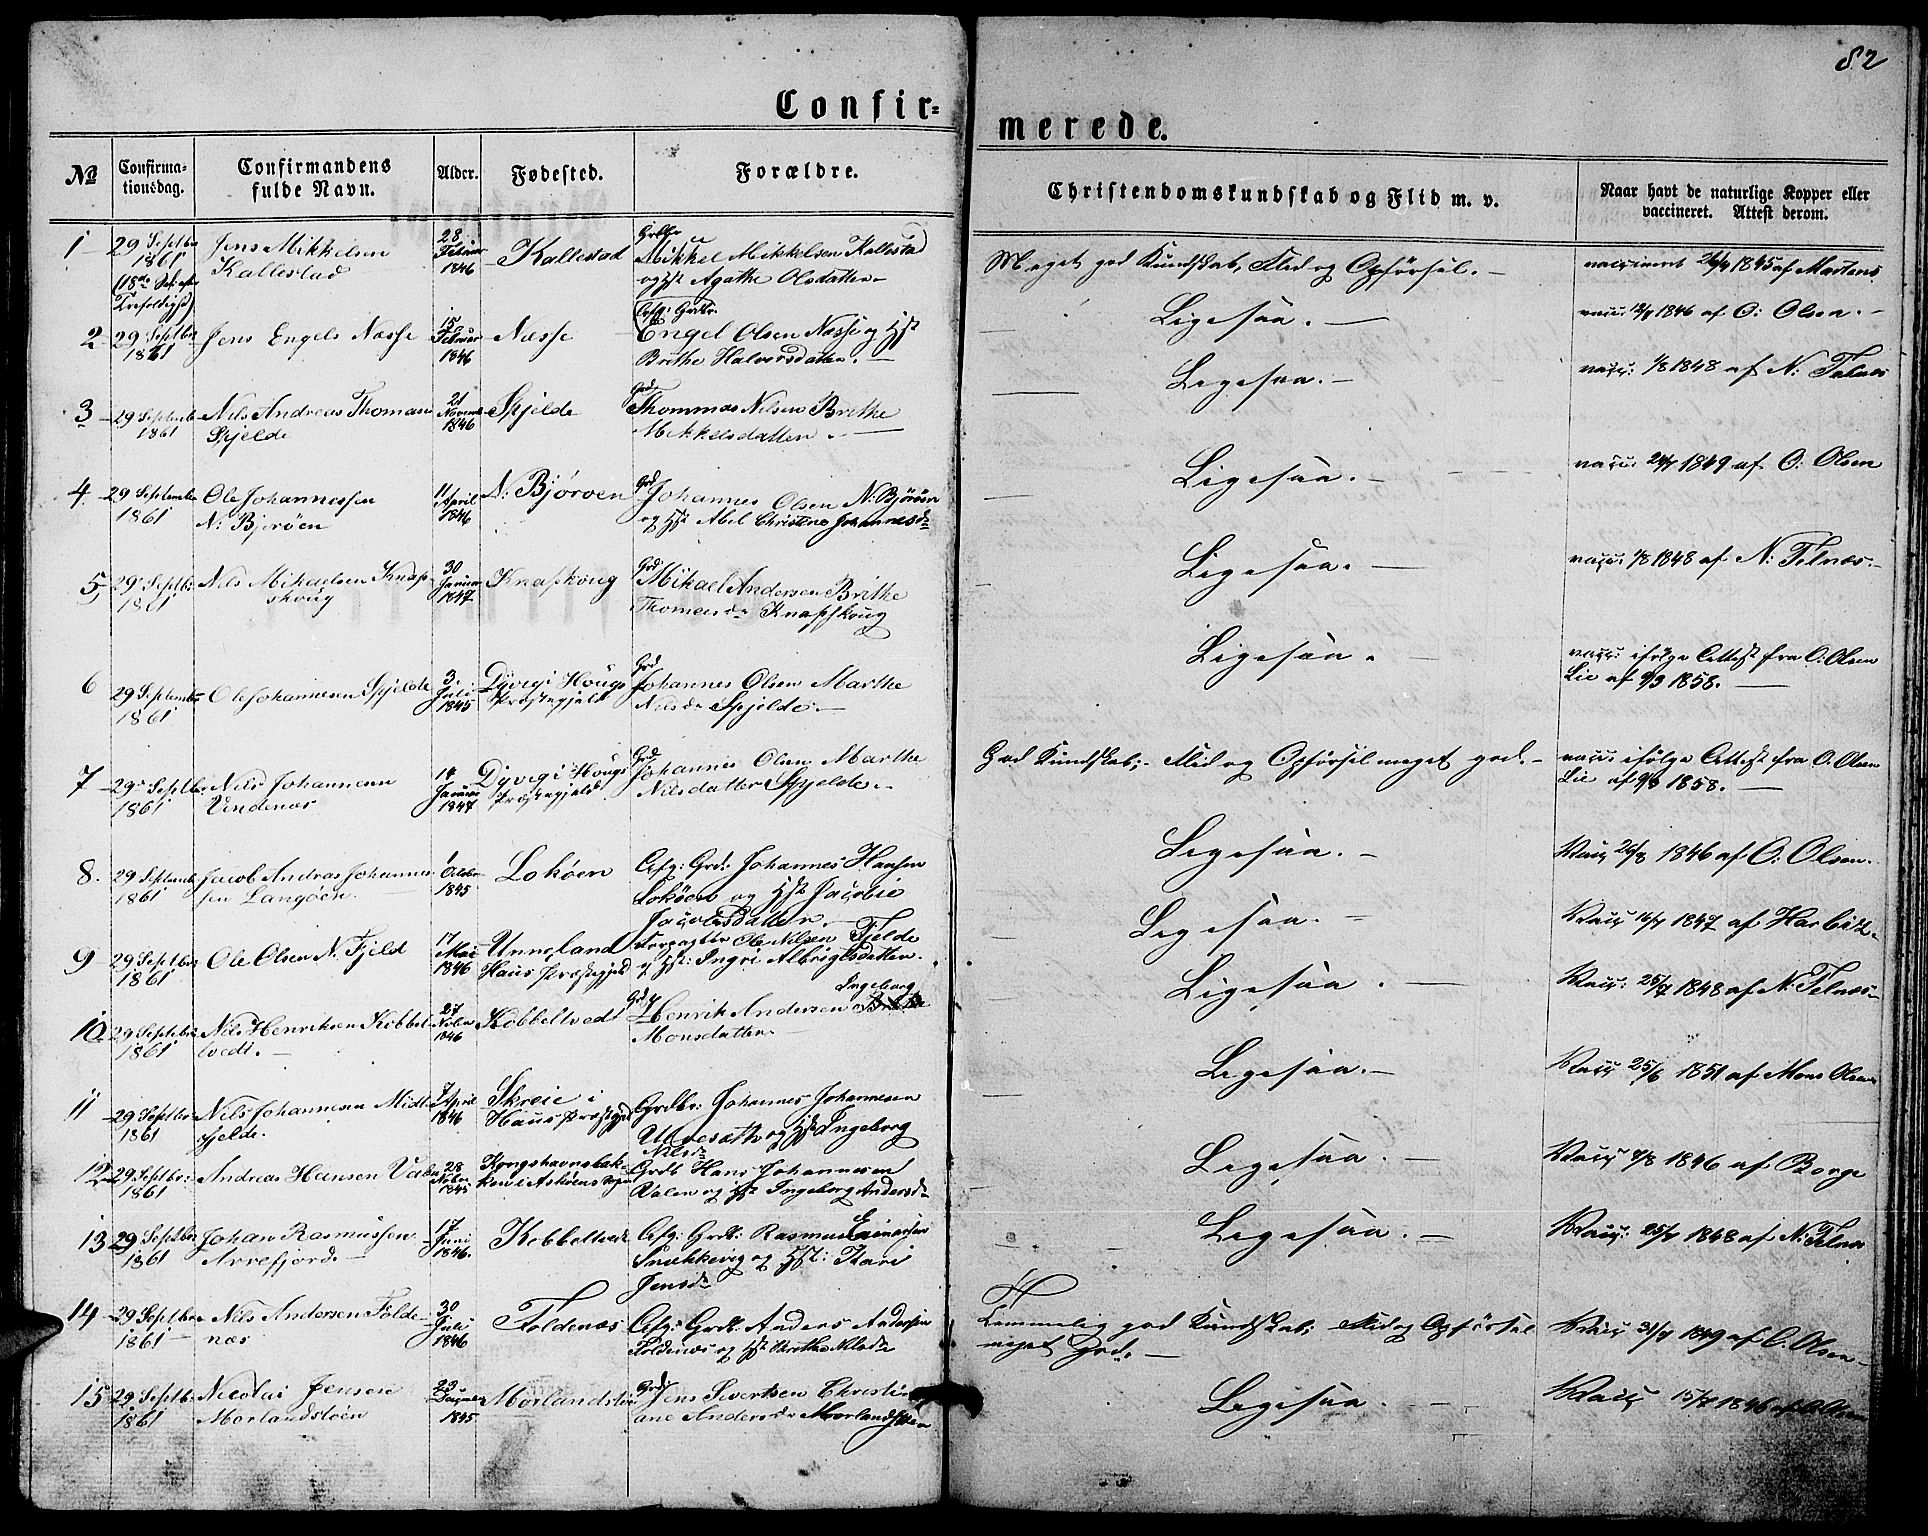 82
Confir-
merede.
№
Confirma-
tionsdag.
Confirmandens
fulde Navn.
Alder.
Fødested.
Forældre.
Christendomskundskab og Flid m. v.
Naar havt de naturlige Kopper eller
vaccineret. Attest derom.
1
29 Septbr
1861
(18de Sønd. efter
Trefoldighed)
Jens Mikkelsen
Kallestad
28
Februar
1846
Kallestad
Mikkel Mikkelsen Kallestad
og Hst Agathe Olsdatter
Meget god Kundskab, Flid og Opførsel. -
vaccineret 1845 af Martens
2
29 Septbr
1861
Jens Engels Nesse
15
Februar
1846
Nesse
Afg: Grdbr.
Engel Olsen Nesse og Hst
Brithe Halvorsdatter. -
Ligesaa. -
1846 af O: Olsen. -
3
29 Septemb
1861
Nils Andreas Thomassen
Skjelde
21
Novemb
1846
Skjelde
Grd
Thommas Nilsen Brithe
Mikkelsdatter. -
Ligesaa. -
vacc: 1/8 1848 af N: Telnes
4.
29 September
1861
Ole Johannessen
N: Bjorøen
11
April
1846
N: Bjørøen
Grd
Johannes Olsen N: Bjørøen
og Hst Abel Christine Johannesdr
Ligesaa. -
vacc: 24/7 1849 af O: Olsen
5,
29 Septbr:
1861
Nils Mikaelsen Knap-
skoug
30
Januar
1847
Knapskoug
Grd
Mikael Andersen Brithe
Thomasdr Knapskoug
Ligesaa. -
vacc: 1/8 1848 af N: Telnæs. -
6
29 September
1861
Ole Johannesen Skjelde
3.
Juli
1845
Dyvig i Hougs
Præstegjeld
Grd
Johannes Olsen Marthe
Nilsdr Skjelde. -
Ligesaa. -
vacc: ifølge Attest fra O: Olsen
Lie af 9/3 1858. -
7
29 Septbr
1861
Nils Johannesen
Vindenæs
14
Januar
1847
Dyvig i Hougs
Præstegjeld
Grd
Johannes Olsen Marthe
Nilsdatter Skjelde. -
God Kundskab; - Flid og Opførsel meget god. -
vacc: ifølge Attest fra O. Olsen
Lie af 9/3 1858. -
8.
29 Septemb
1861
Jacob Andreas Johannes-
sen Langøen
1
Octbr
1845
Lokøen
Afg: Grd: Johannes Hansen
Lokøen og Hst Jacobie
Jacobsdatter. -
Ligesaa. -
Vacc 26/8 1846 af O. Olsen.
9
29 Septbr
1861
Ole Olsen N. Fjeld
17
Mai
1846
Unneland
Haus Præstegjeld
Forpagter Ole Nilsen Fjelde
og Hst: Ingri Albrigtsdatter.
Ligesaa. -
Vacc 16/7 1847 af Harbitz.
10
29 Septbr
1861
Nils Henriksen Kobbel
tvedt. -
27
Nobr
1846
Kobbeltvedt
Grd
Ingeborg
Henrik Andersen
Monsdatter
Ligesaa. -
Vacc: 25/7 1848 af N: Telnæs -
11
29 Septbr
1861
Nils Johannesen Midt-
fjelde.
7 April
1846
Skreie i
Haus Præstegjeld
Grdbr: Johannes Johannesen
Ulvesæth og Hst Ingeborg
Nilsdr
Ligesaa. -
Vacc 25/6 1851 af Mons Olsen
12
29 Septbr:
1861
Andreas Hansen Valen
28
Nobr
1845
Kongshavnsbak-
ken i Askøens Sogn
Grdb Hans Johannesen
Valen og Hst Ingeborg Andersdr
Ligesaa. -
Vacc 4/8 1846 af Berge
13
29 Septbr
1861
Johan Rasmussen
Arrefjord -
17
Juni
1846.
Kobbeltvedt
Afg: Grdb: Rasmus Einersen
Snekkevig og Hst: Kari
Jensdr
Ligesaa. -
Vacc: 25/7 1848 af N: Telnæs
14
29 Septbr
1861
Nils Andersen Folde-
næs
30
Juli
1846
Foldenæs
Afg: Grdb: Anders Andersen
Foldenæs og Hst Brithe Nilsdr
Temmelig god Kundskab; Flid og Opførsel
meget god. -
Vacc 31/7 1849 af O. Olsen -
15
29 Septbr
1861
Nicolai Jensen
Morlandstøen
23
1845
Morlandstøen
Grd:
Jens Sivertsen Christi-
ane Andersdr Morlandstøen
Ligesaa. -
Vacc 15/7 1846 af O. Olsen